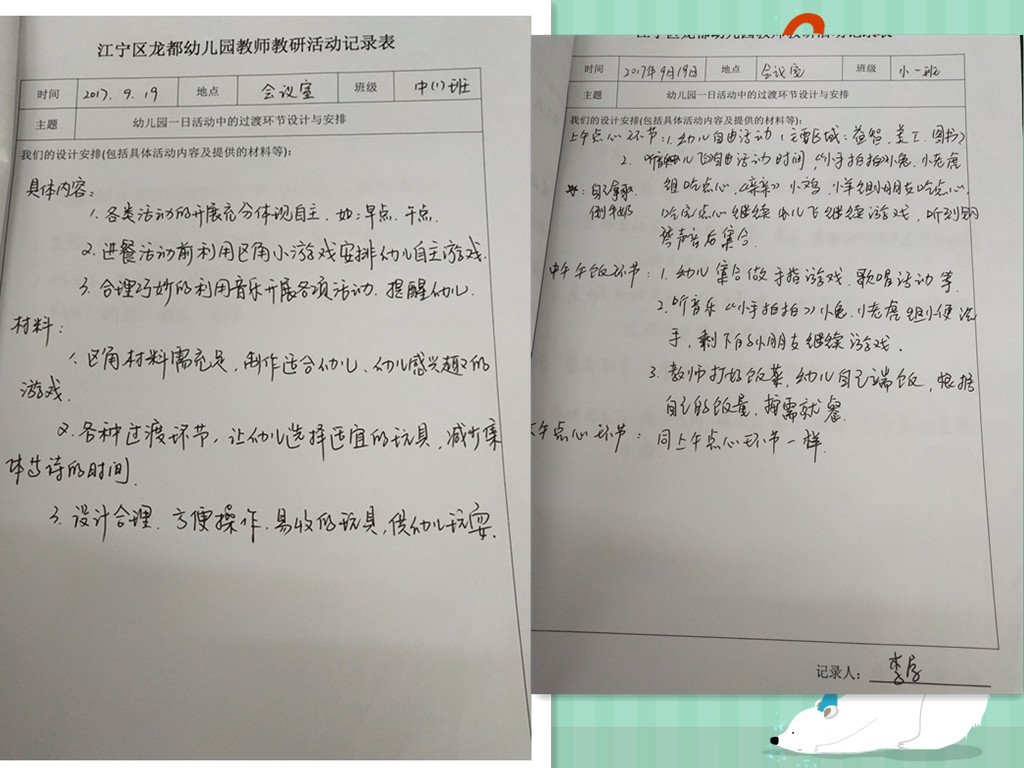 江宁区龙都幼儿园教师教研活动记录表
时间 2017.9.19 地点 会议室 班级 中(1)班
主题 幼儿园一日活动中的过渡环节设计与安排
我们的设计安排(包括具体活动内容及提供的材料等):
具体内容:
1.各类活动的开展充分体现自主.如:早点.午点.
2.进餐活动前利用区角小游戏安排幼儿自主游戏.
3.合理巧妙的利用音乐开展各项活动.提醒幼儿.
材料:
1.区角材料需充足,制作适合幼儿、幼儿感兴趣的
游戏.
2.各种过渡环节,让幼儿选择适宜的玩具,减少集
体等待的时间.
3.设计合理.方便操作.易收的玩具,供幼儿玩耍.
江宁区龙都幼儿园教师教研活动记录表
时间 2017年9月19日 地点 会议室 班级 小一班
主题 幼儿园一日活动中的过渡环节设计与安排
我们的设计安排(包括具体活动内容及提供的材料等):
上午点心环节:1.幼儿自由活动(主要区域:益智.美工.图书)
2.听 自由活动时间,《小手拍拍》小兔.小老虎
组吃点心,《亲亲》小鸡.小羊组小朋友吃点心.
自己拿取
倒牛奶
吃完点心继续 继续游戏,听到钢
琴声音后集合.
中午午饭环节:1.幼儿集合做手指游戏.歌唱活动等.
2.听音乐《小手拍拍》小兔.小老虎组小便洗
手,剩下的小朋友继续游戏.
3.教师打好饭菜,幼儿自己端饭,根据
自己的饭量,按需就餐.
下午点心环节:同上午点心环节一样.
记录人: